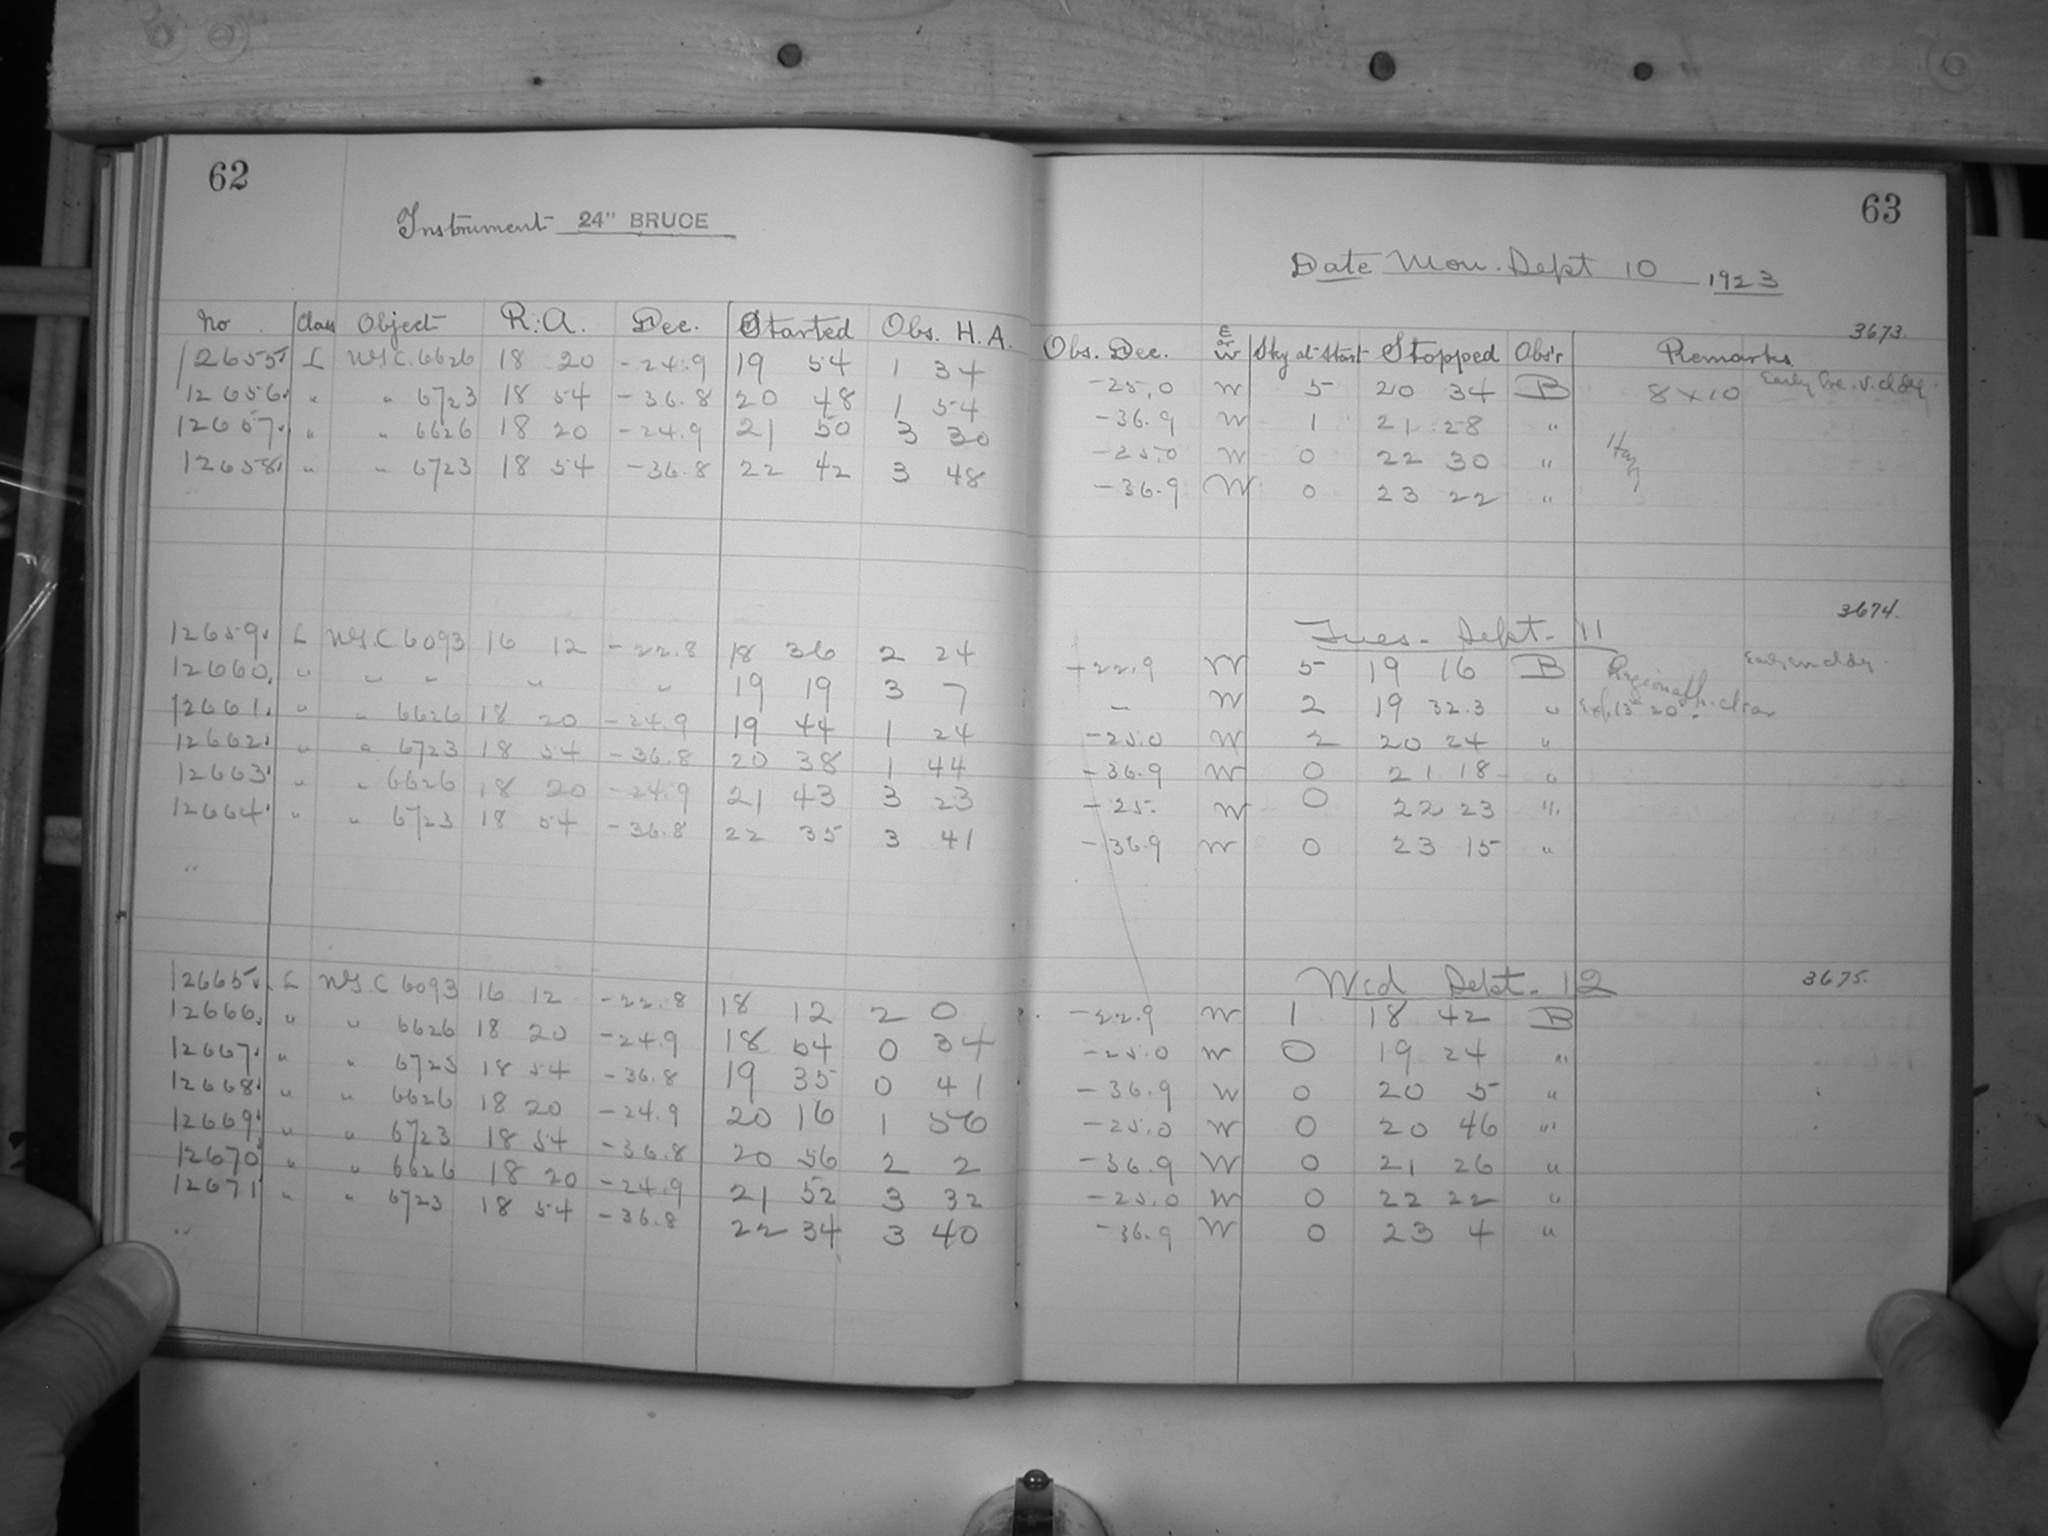 62
Instrument 24" BRUCE
No Class Object R.A. Dec. Started Obs. H.A.
12655 L N.G.C. 6626 18 20 -24.9 19 54 1 34
12656 " " 6723 18 54 -36.8 20 48 1 54
12657 " " 6626 18 20 -24.9 21 50 3 30
12658 " " 6723 18 54 -36.8 22 42 3 48
12659 L N.G.C. 6093 16 12 -22.8 18 36 2 24
12660 " " " " " 19 19 3 7
12661 " " 6626 18 20 -24.9 19 44 1 24
12662 " " 6723 18 54 -36.8 20 38 1 44
12663 " " 6626 18 20 -24.9 21 43 3 23
12664 " " 6723 18 54 -36.8 22 35 3 41
"
12665 L N.G.C 6093 16 12 -22.8 18 12 2 0
12666 " " 6626 18 20 -24.9 18 54 0 34
12667 " " 6723 18 54 -36.8 19 35 0 41
12668 " " 6626 18 20 -24.9 20 16 1 56
12669 " " 6723 18 54 -36.8 20 56 2 2
12670 " " 6626 18 20 -24.9 21 52 3 32
12671 " " 6723 18 54 -36.8 22 34 3 40
"
63
Date Mon. Sept 10 1923
3673.
Obs. Dec. E or W Sky at Start Stopped Obs'r Remarks
-25.0 W 5 20 34 B 8 x 10 Early
-36.9 W 1 21 28 "
-25.0 W 0 22 30 " Hazy
-36.9 W 0 23 22 "
3674.
Tues. Sept. 11
-22.9 W 5 19 16 B
- W 2 19 32.3 " Exp. 13m 20s
-25.0 W 2 20 24 "
-36.9 W 0 21 18 "
-25. W 0 22 23 "
-36.9 W 0 23 15 "
Wed Sept. 12 3675.
-22.9 W 1 18 42 B
-25.0 W 0 19 24 "
-36.9 W 0 20 5 "
-25.0 W 0 20 46 "
-36.9 W 0 21 26 "
-25.0 W 0 22 22 "
-36.9 W 0 23 4 "